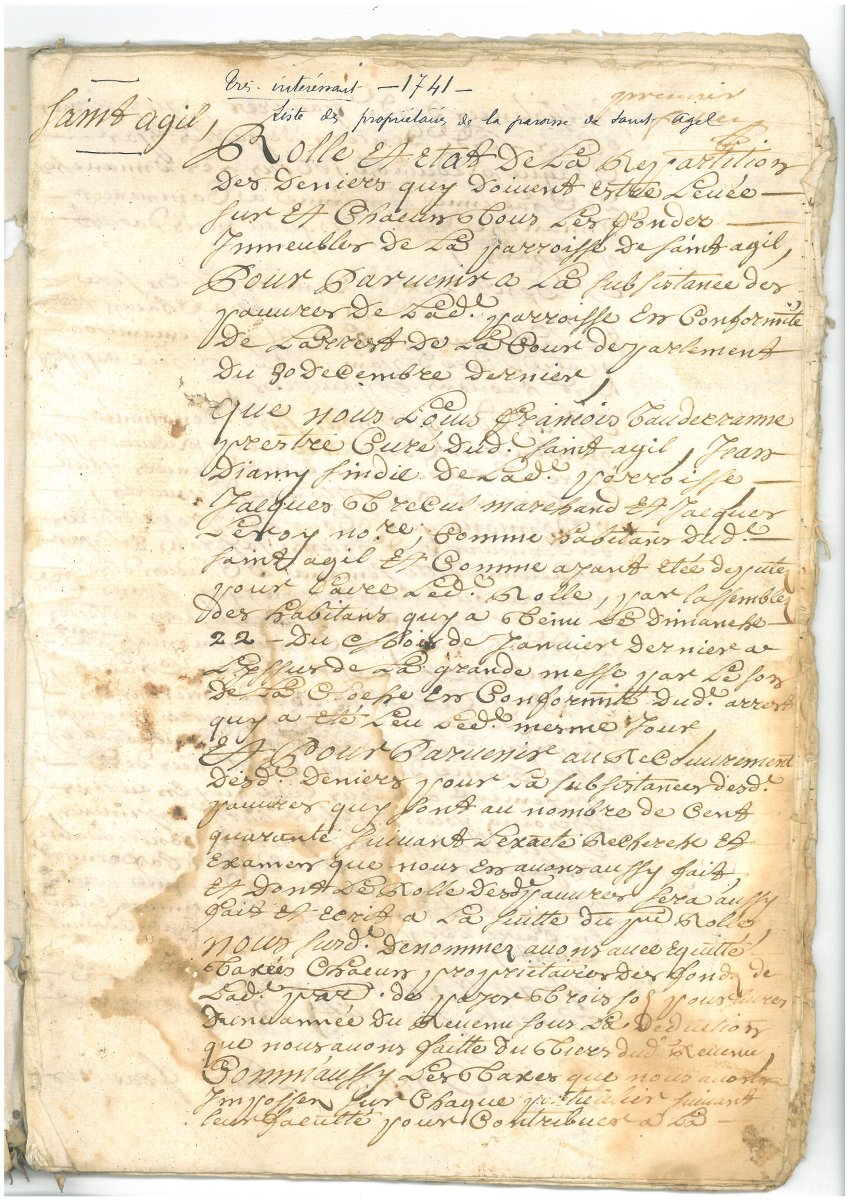 Très intéressant - 1741 -
Liste des propriétaires de la paroisse de Saint Agil
premier
Saint agil,
Rolle Et Etat De La Repartition
Des Deniers quy doivent Estre Leuée
sur Et Chacun Tous Les fonder
Immeubles De La parroisse de saint agil,
Pour Paruenir a La subsistance des
pauures De Lad.^e parroisse En Conformité
De Larrest De La Cour de parlement
Du 30 Decembre dernier,
que nous Loüis francois
prestre Curé Dud.^t saint agil, Jean
Diamy sindic De Lad.^e parroisse
Jacques Trecul marchand Et Jacques
Leroy no.^re, Comme habitans dud.^t
saint agil Et Comme ayant Etée depute
pour faire Led.^t Rolle, par lassemblee
des habitans quy a Tenu Le Dimanche
22 - Du Mois de Januier dernier a
Lessue de La grande messe par Le son
De La Cloche En Conformité Dud.^t arrest
quy a Eté Leu Led.^t mesme Jour,
Et Pour Paruenir au Recouurement
Desd.^s Deniers pour La subsistances desd.^s
pauures quy sont au nombre de Cent
quarante suiuant Lexacte Recherche Et
Examen que nous En auons aussy fait,
Et Dont Le Rolle Desd.^s pauures sera aussy
fait Et Ecrit a La suitte du p^nt Rolle,
nous surd.^s Denommez auons auec Equitté
Taxées Chacun proprietaires des fonds de
Lad.^e par. de payer Trois sols pour liures
Dune année Du Reuenu sous La Deduction
que nous auons faitte Du Tiers dud.^t Reuenu,
Comm'aussy Les Taxes que nous auons
Imposser sur Chaque particulier suiuant
leur faculté pour Contribuer a La